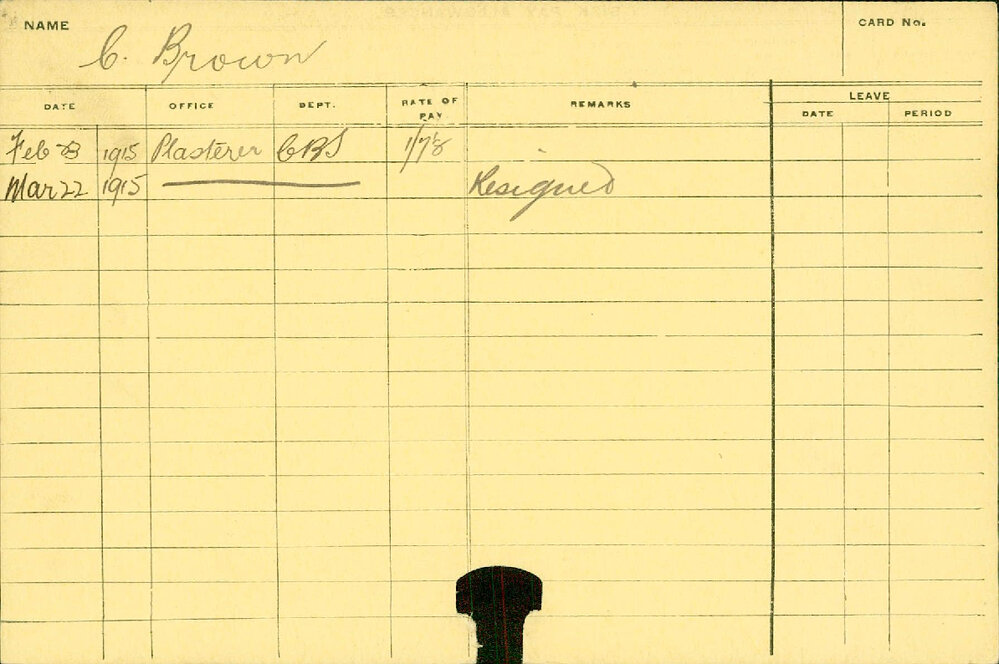 NAME C. Brown CARD No.
DATE OFFICE DEPT. RATE OF PAY REMARKS LEAVE DATE PERIOD
Feb 23 1915 Plasterer CBS
Mar 22 1915 Resigned